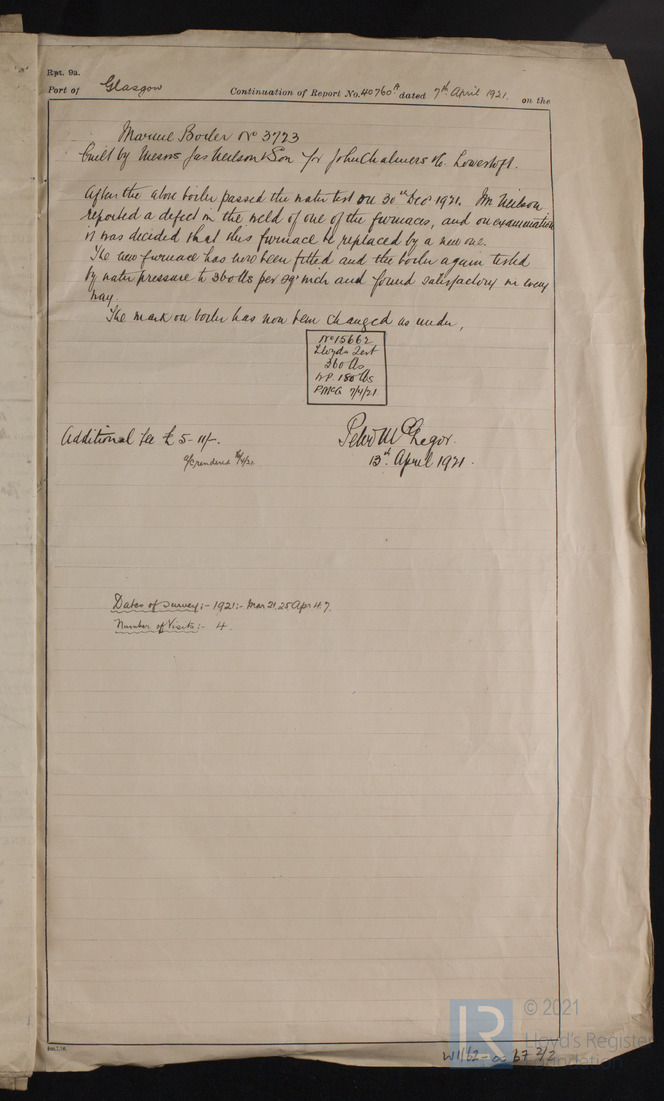 Rpt. 9a.
Port of Glasgow Continuation of Report No. 40760A dated 7th April 1921. on the
Marine Boiler No 3773
built by Messrs Jas Neilson & Son for John Chalmers &c. Lowestoft.
After the above boiler passed the water test on 30th Decr 1921. Mr Neilson
reported a defect in the weld of one of the furnaces, and on examination
it was decided that this furnace be replaced by a new one.
The new furnace has now been fitted and the boiler again tested
by water pressure to 360 lbs per sq inch and found satisfactory in every
way.
The mark on boiler has now been changed as under,
No 15662
Lloyds Test
360 lbs
W.P. 180 lbs
PMcG 7/4/21
Additional fee £5-11/-.
Peter McGregor.
13th April 1921.
Dates of Survey:- 1921:- Mar 21. 25 Apr 4. 7.
Number of Visits:- 4.
© 2021
Lloyd's Register
Foundation
W1162-0067 2/2